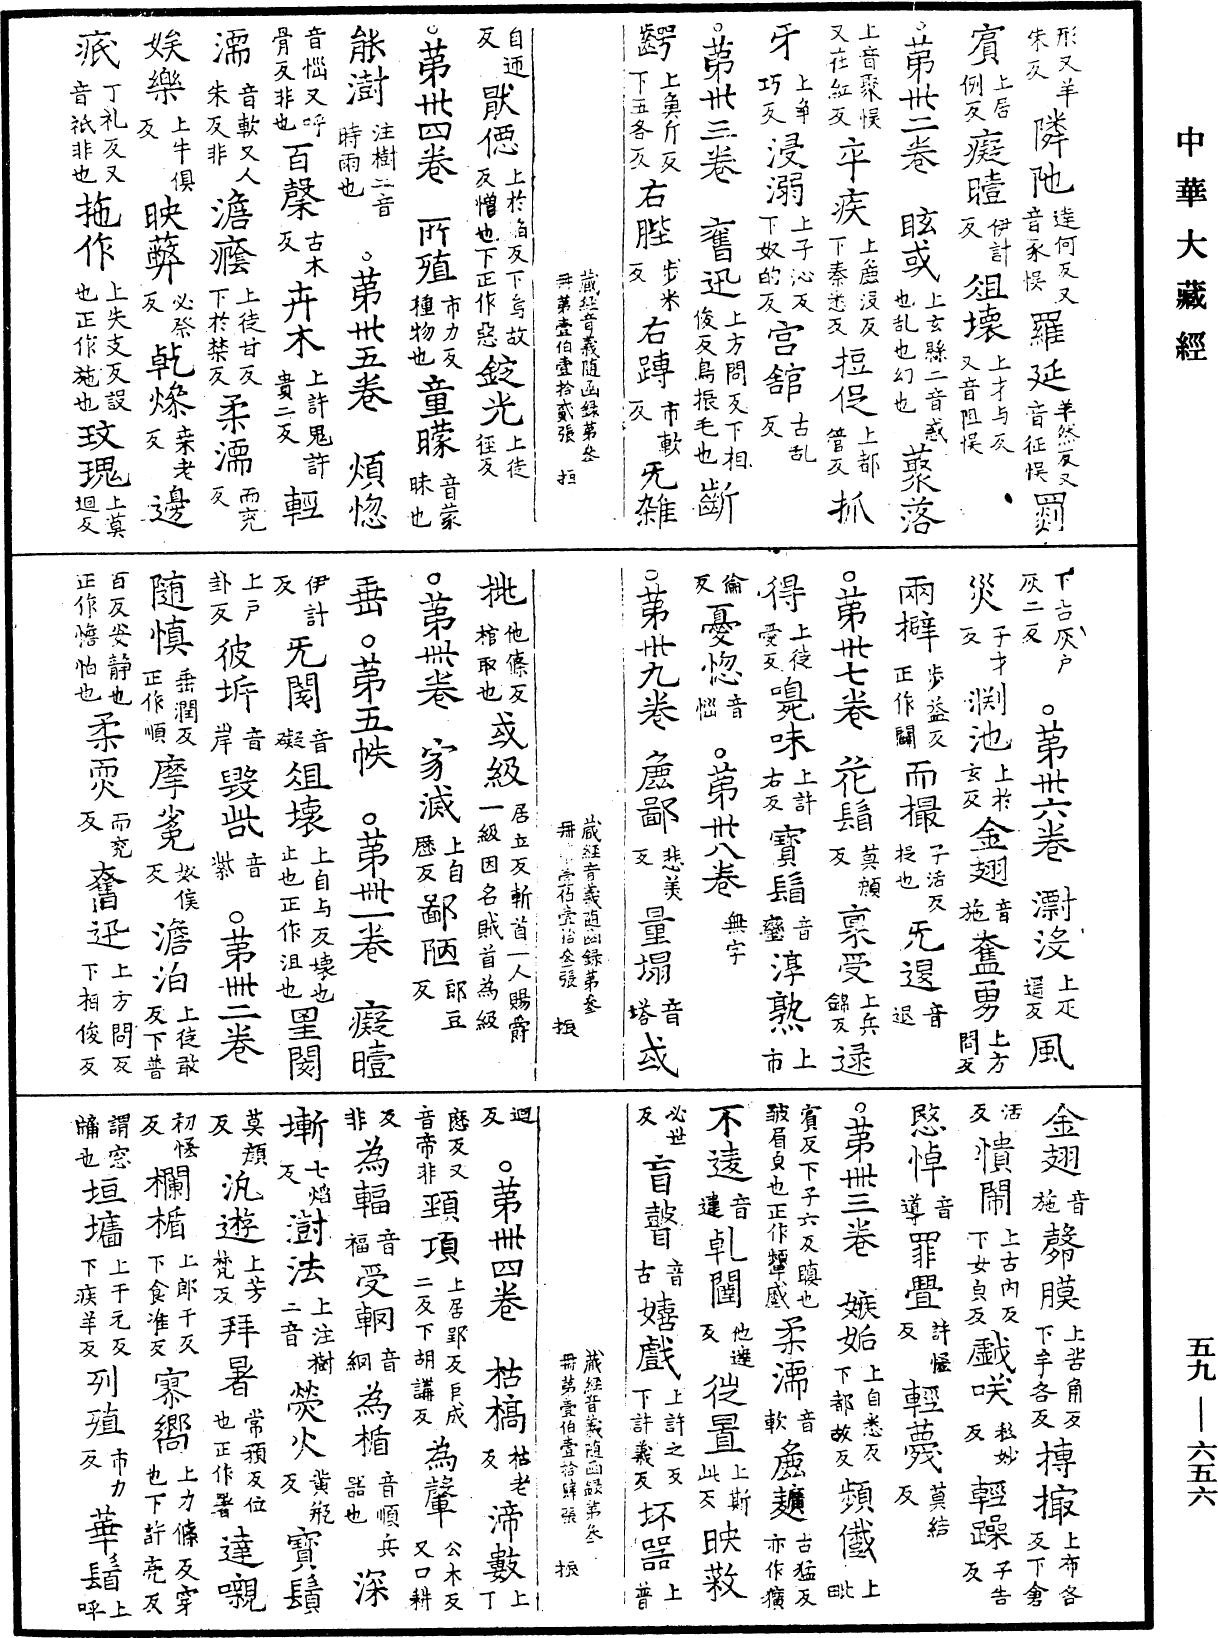 中華大藏經
形又羊朱反 隣阤 達何反又音豕悞 羅延 羊然反又音征悞 罽
賔 上居例反 癡曀 伊計反 俎壞 上才与反又音阻悞
○苐卅二卷 眩或 上玄縣二音惑也乱也幻也 藂落
上音聚悞又在紅反 卒疾 上麁没反下秦悉反 挳促 上都管反 抓
牙 上爭巧反 浸溺 上子沁反下奴的反 宫舘 古乱反
○苐卅三卷 奮迅 上方問反下相俊反鳥振毛也 齗
齶 上魚斤反下五各反 右䏶 步米反 右䏝 市軟反 旡雑
藏經音義随函録第叁 冊第壹伯壹拾貳張 抯
自迊反 猒僫 上於焰反下烏故反憎也下正作惡 錠光 上徒徑反
○苐卅四卷 所殖 市力反種物也 童曚 音蒙昧也
䏻澍 注樹二音時雨也 ○苐卅五卷 煩惚
音惱又呼骨反非也 百槃 古木反 卉木 上許鬼許貴二反 輕
濡 音軟又人朱反非 澹癊 上徒甘反下於禁反 柔濡 而兖反
娭樂 上牛俱反 映蔽 必祭反 乹燥 桒老反 邊
疧 丁礼反又音祇非也 拖作 上失支反設也正作施也 玟瑰 上莫迴反
下古灰戶灰二反 ○苐卅六卷 㵟没 上疋遥反 風
災 子才反 渊池 上於玄反 金翅 音施 奮勇 上方問反
兩擗 步益反正作闢 而撮 子活反捉也 旡退 音退
○苐卅七卷 花鬘 莫顔反 禀受 上兵錦反 逯
得 上徒愛反 嗅味 上許右反 寳鬘 音蠻 淳熟 上市
倫反 憂惚 音惱 ○苐卅八卷 無字
○苐卅九卷 麁鄙 悲美反 量塌 音塔 或
藏經音義随函録第叁 冊第壹伯壹拾叁張 振
挑 他條反棺取也 或級 居立反斬首一人賜爵一級因名賊首為級
○苐卌卷 家滅 上自歷反 鄙陋 郎豆反
垂 ○苐五帙 ○苐卌一卷 癡曀
伊計反 旡閡 音礙 俎壞 上自与反壞也止也正作沮也 罣閡
上戸卦反 彼㟁 音岸 毁呰 音紫 ○苐卌二卷
随慎 垂潤反正作順 摩㝹 奴侯反 澹泊 上徒敢反下普
百反安静也正作憺怕也 柔耎 而兖反 奮迅 上方問反下相俊反
金翅 音施 髈膜 上苦角反下宇各反 搏撖 上布各反下倉
活反 憒閙 上古内反下女皃反 戯咲 私妙反 輕躁 子告反
慜悼 音導 罪舋 許愘反 輕蔑 莫結反
○苐卌三卷 嫉妬 上自悉反下都故反 頻㦰 上毗
賔反下子六反瞋也皺眉皃也正作顰慼 柔濡 音軟 麁䵃 古猛反亦作獷
不逵 音逹 乹闥 他達反 徙置 上斯此反 映蔽
必世反 盲瞽 音古 嬉戲 上許之反下許義反 坏器 上普
藏經音義随函録第叁 冊第壹伯壹拾肆張 振
迴反 ○苐卌四卷 枯槁 枯老反 渧數 上丁
歷反又音帝非 頸項 上居郢反巨成二反下胡講反 為轂 公木反又口耕
反非 為輻 音福 受輞 音網 為楯 音順兵噐也 深
塹 七焰反 澍法 上注樹二音 熒火 黄瓶反 寳鬘
莫顔反 汎遊 上芳梵反 拜暑 常預反位也正作署 達嚫
初愘反 欄楯 上郎干反下食准反 寮嚮 上力條反穿也下許亮反
謂窓牗也 垣墻 上于元反下疾羊反 列殖 市力反 華鬘 上呼
五九——六五六